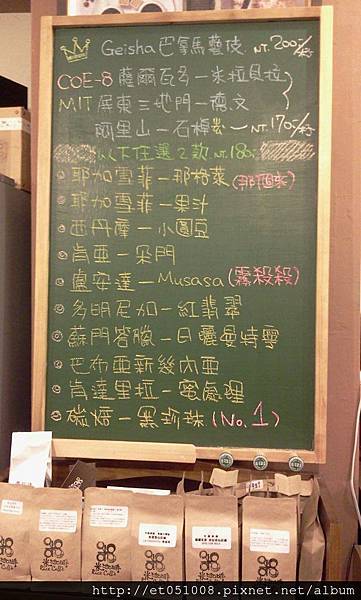 Geisha 巴拿馬藝伎 NT.200/杯
COE-8 薩爾瓦多－米拉貝拉
MIT 屏東三地門－德文
阿里山－石棹 NT.170/杯
以下任選2款 NT.180
耶加雪菲－那格萊(那個來)
耶加雪菲－果汁
西丹摩－小圓豆
肯亞－朵門
盧安達－Musasa(霧殺殺)
多明尼加－紅翡翠
蘇門答臘－日曬曼特寧
巴布亞新幾內亞
肯達里拉－蜜處理
碳焙－黑珍珠(No.1)
米 咖啡
http://et051008.pixnet.net/album